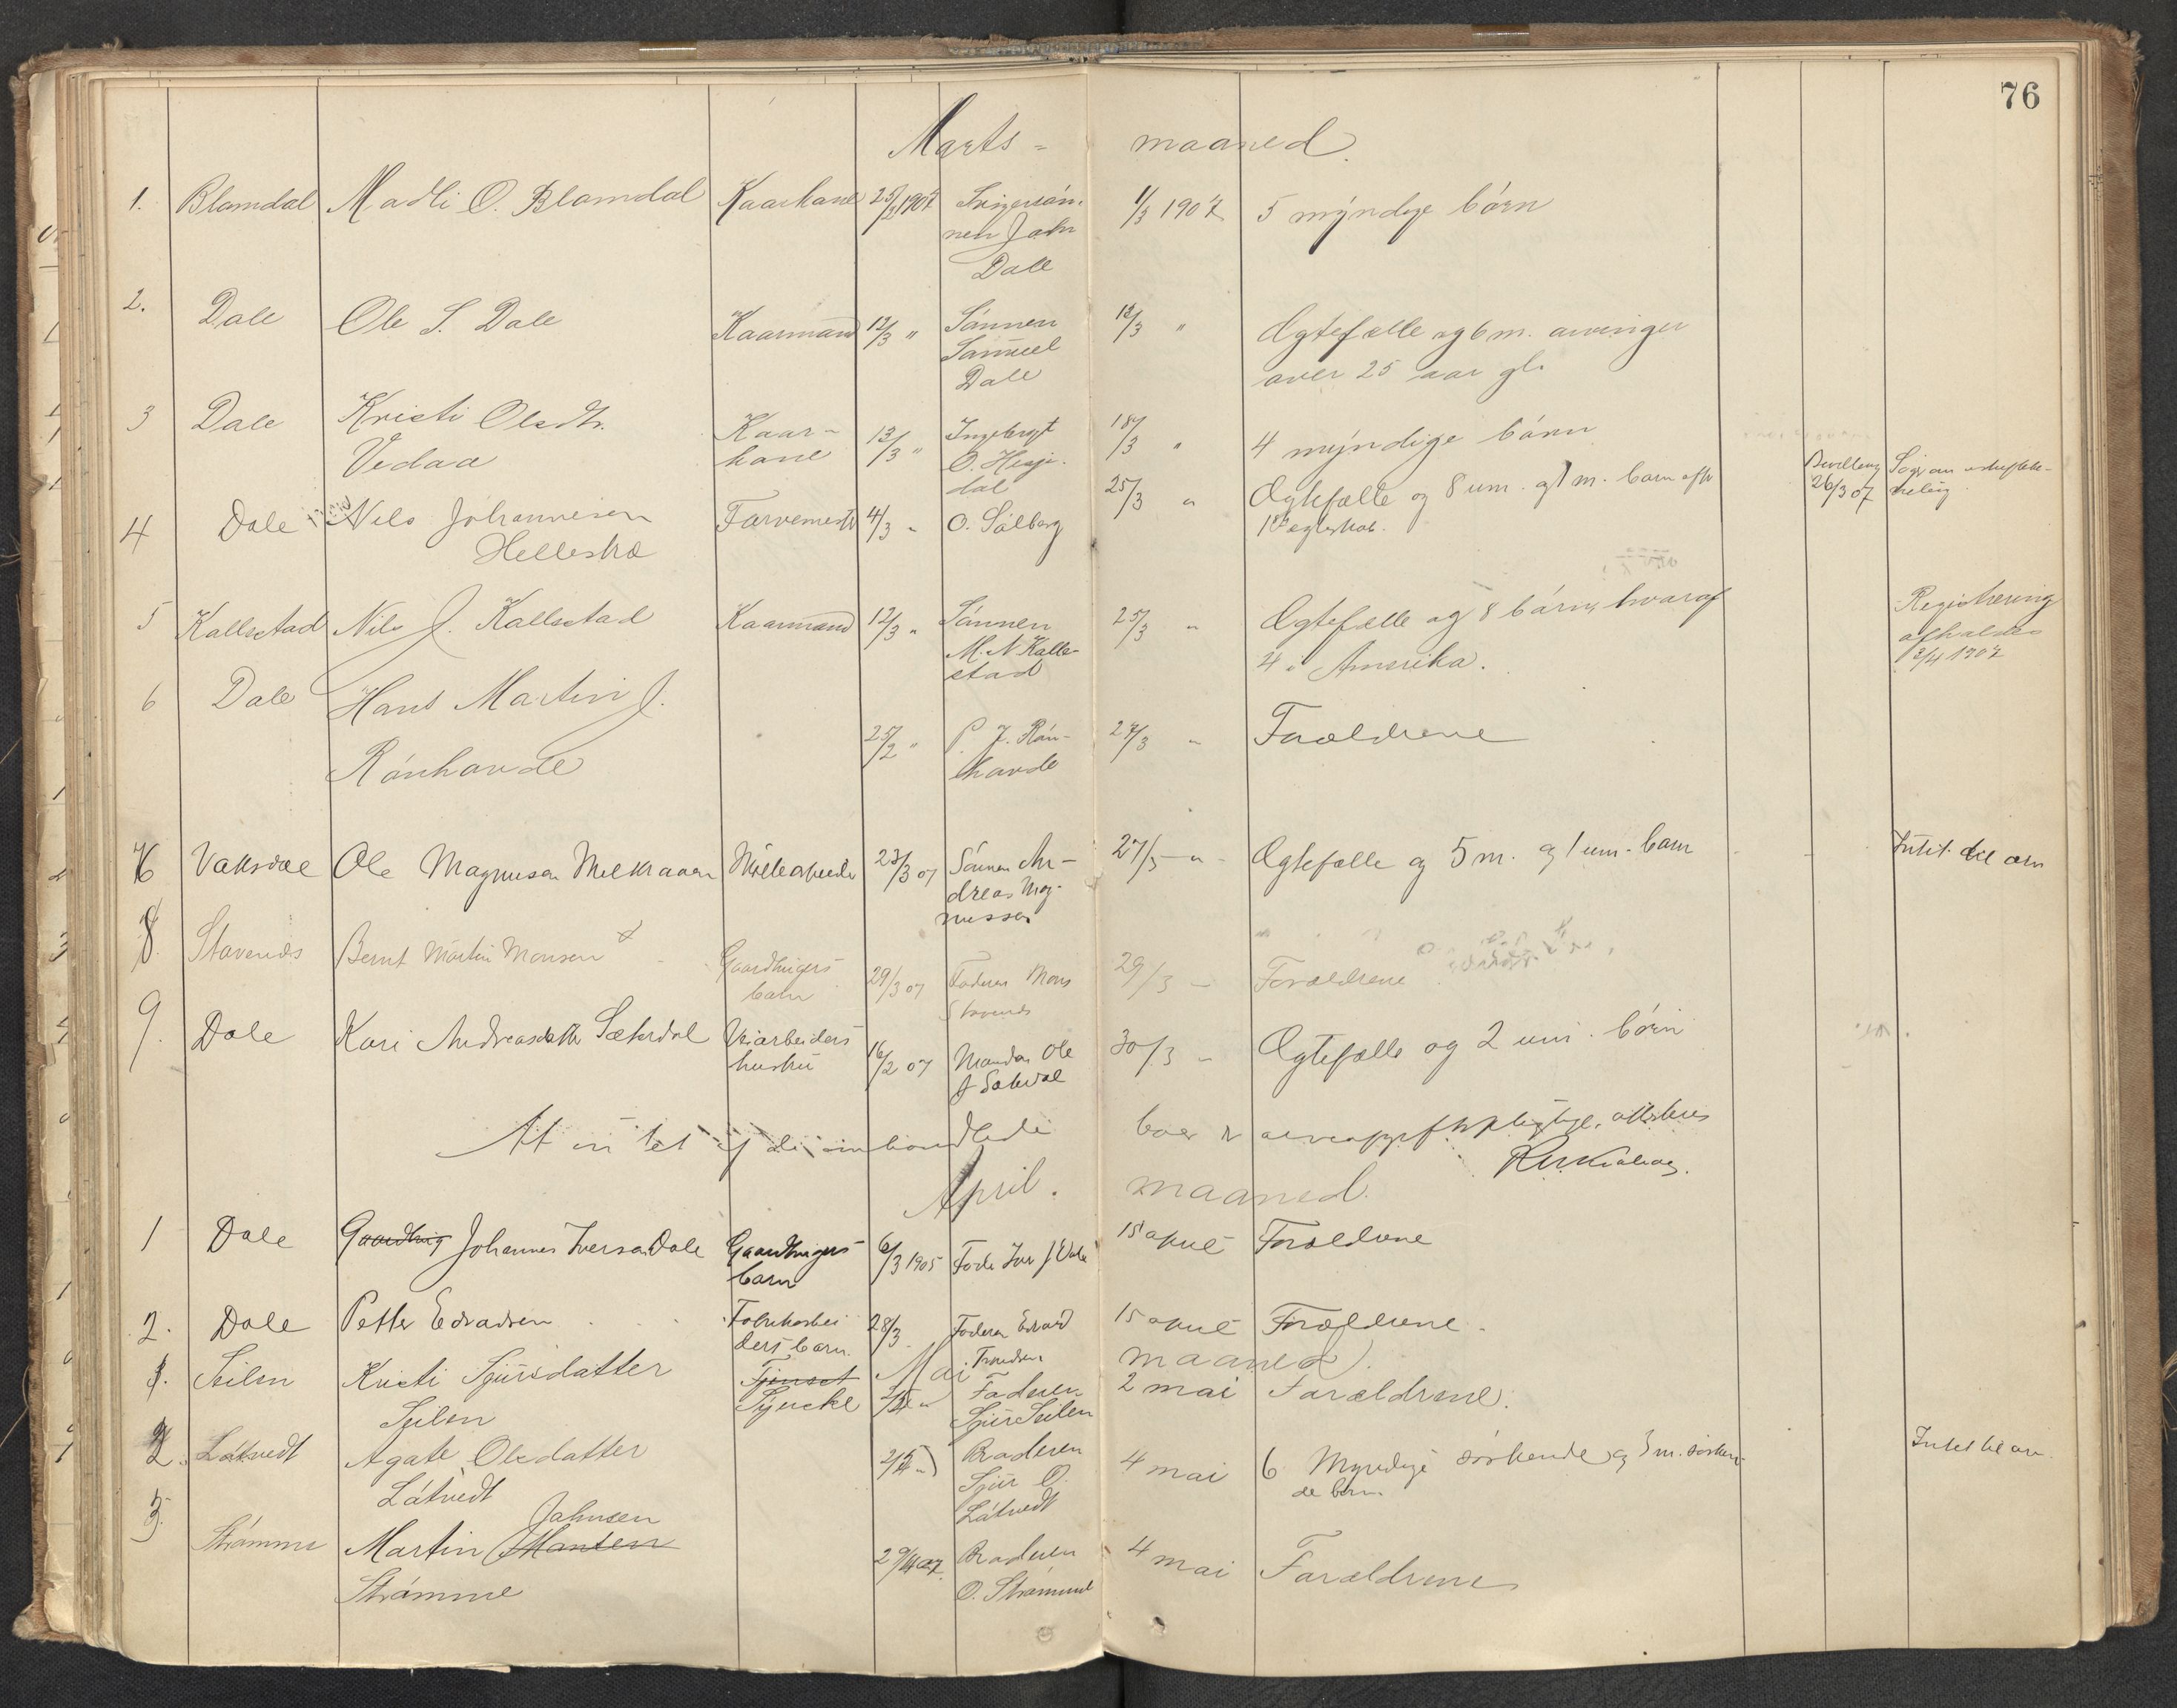 76
Marts - maaned.
1. Blomdal Madli O. Blomdal Kaarkone 25/2 1907 Svigersøn- 1/3 1907 5 myndige børn
nen John
Dale
2. Dale Ole S. Dale Kaarmand 12/3 " Sønnen 18/3 " Ægtefælle og 6 m. arvinger
Samuel over 25 aar gl.
Dale
3 Dale Kristi Olsdtr. Kaar- 13/3 " Ingebrigt 18/3 " 4 myndige børn
Vedaa kone O. Hesje-
dal
4 Dale Nils Johannesen Farvemester 4/3 " O. Solberg 25/3 " Ægtefælle og 8 um. og 1 m. barn efter Bevilling
Helleskæ 1ste ægteskab. 26/3 07
5 Kallestad Nils J. Kallestad Kaarmand 12/3 " Sønnen 25/3 " Ægtefælle og 8 børn, hvoraf Registrering
M. N. Kalle- 4 i Amerika. afholdes
stad 2/4 1907
6 Dale Hans Martin J.
Rønhovde 25/2 " P. J. Røn- 27/3 " Forældrene
hovde
7 Vaksdal Ole Magnusen 23/3 07 Sønnen An- 27/3 - " - Ægtefælle og 5 m. og 1 um. barn Intet til arv
dreas Mag-
nussen
8. Stavenes Bernt Martin Monsen Gaardbrugers 29/3 07 Faderen Mons 29/3 - Forældrene
barn Stavenes
9. Dale Kari Andreasdatter Sæterdal Veiarbeiders 16/2 07 Manden Ole 30/3 - Ægtefælle og 2 um. børn
hustru
At intet af de omhandlede boer er arveafgiftspligtige, attesteres
April. maaned.
1 Dale Gaardbrug Johannes Iversen Dale Gaardbrugers 6/3 1905 Fader Iver J Dale 15 april Forældrene
barn
2. Dale Petter Edvardsen Fabrikarbei 28/3 Faderen Edvard 15 april Forældrene.
ders barn. Trondsen
Mai maaned.
1. Seilen Kristi Sjursdatter Tjenest Faderen 2 mai Forældrene.
Seilen Syerske Sjur Seilen
2. Låtvedt Agate Olsdatter Broderen 4 mai 6 Myndige søskende og 3 m. søsken- Intet til arv
Låtvedt Sjur O. de børn.
Låtvedt
3. Strømme Martin Monsen Johnsen 29/4 07. Broderen 4 mai Forældrene
Strømme O. Strømme